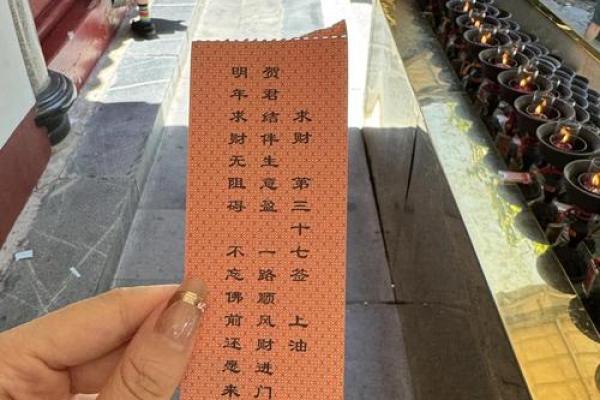 求财 第三十七签 上油
贺君结伴生意盈 一路顺风财进门
明年求财无阻碍 不忘佛前还愿来